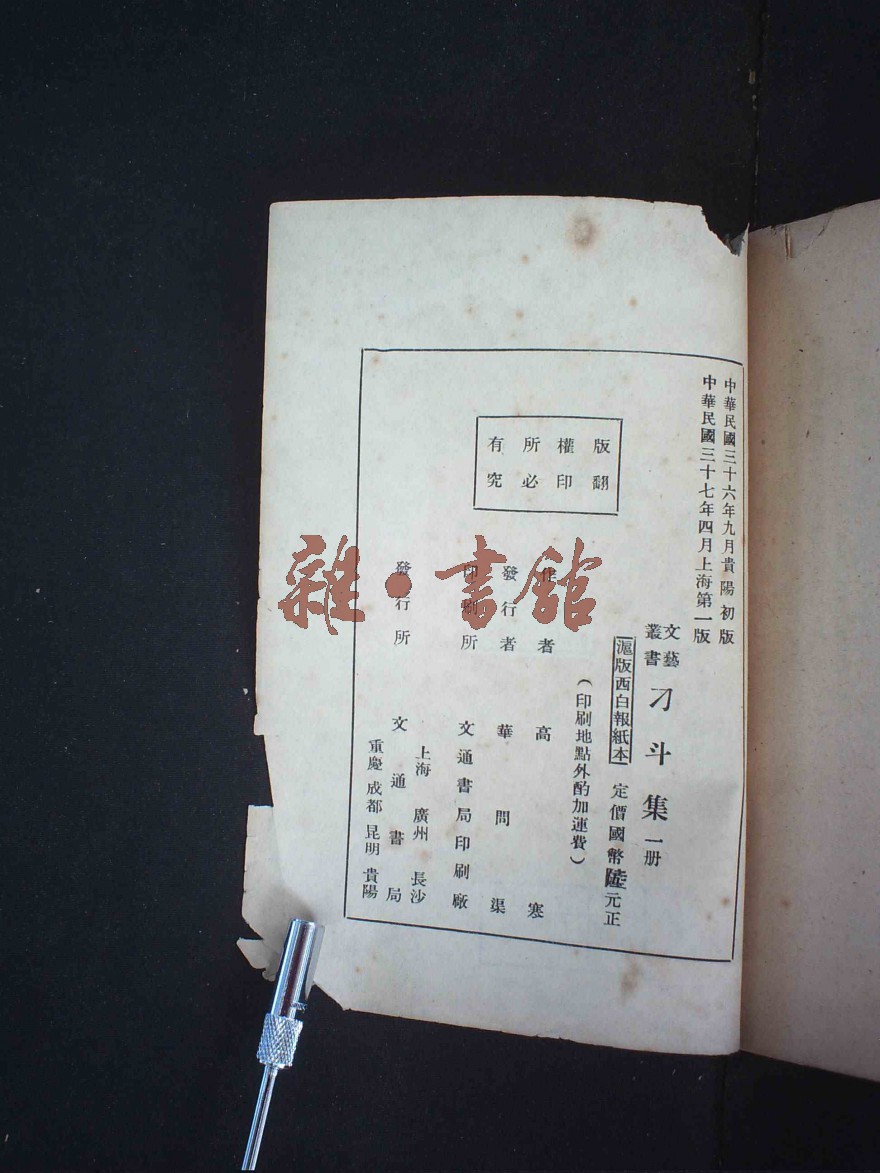 中華民國三十六年九月貴陽初版
中華民國三十七年四月上海第一版
文藝叢書 刁斗集 一册
滬版西白報紙本 定價國幣陸元正
（印刷地點外酌加運費）
版權所有
翻印必究
作者 高寒
發行者 華問渠
印刷所 文通書局印刷廠
發行所 文通書局
上海 廣州 長沙
重慶 成都 昆明 貴陽
雜·書館